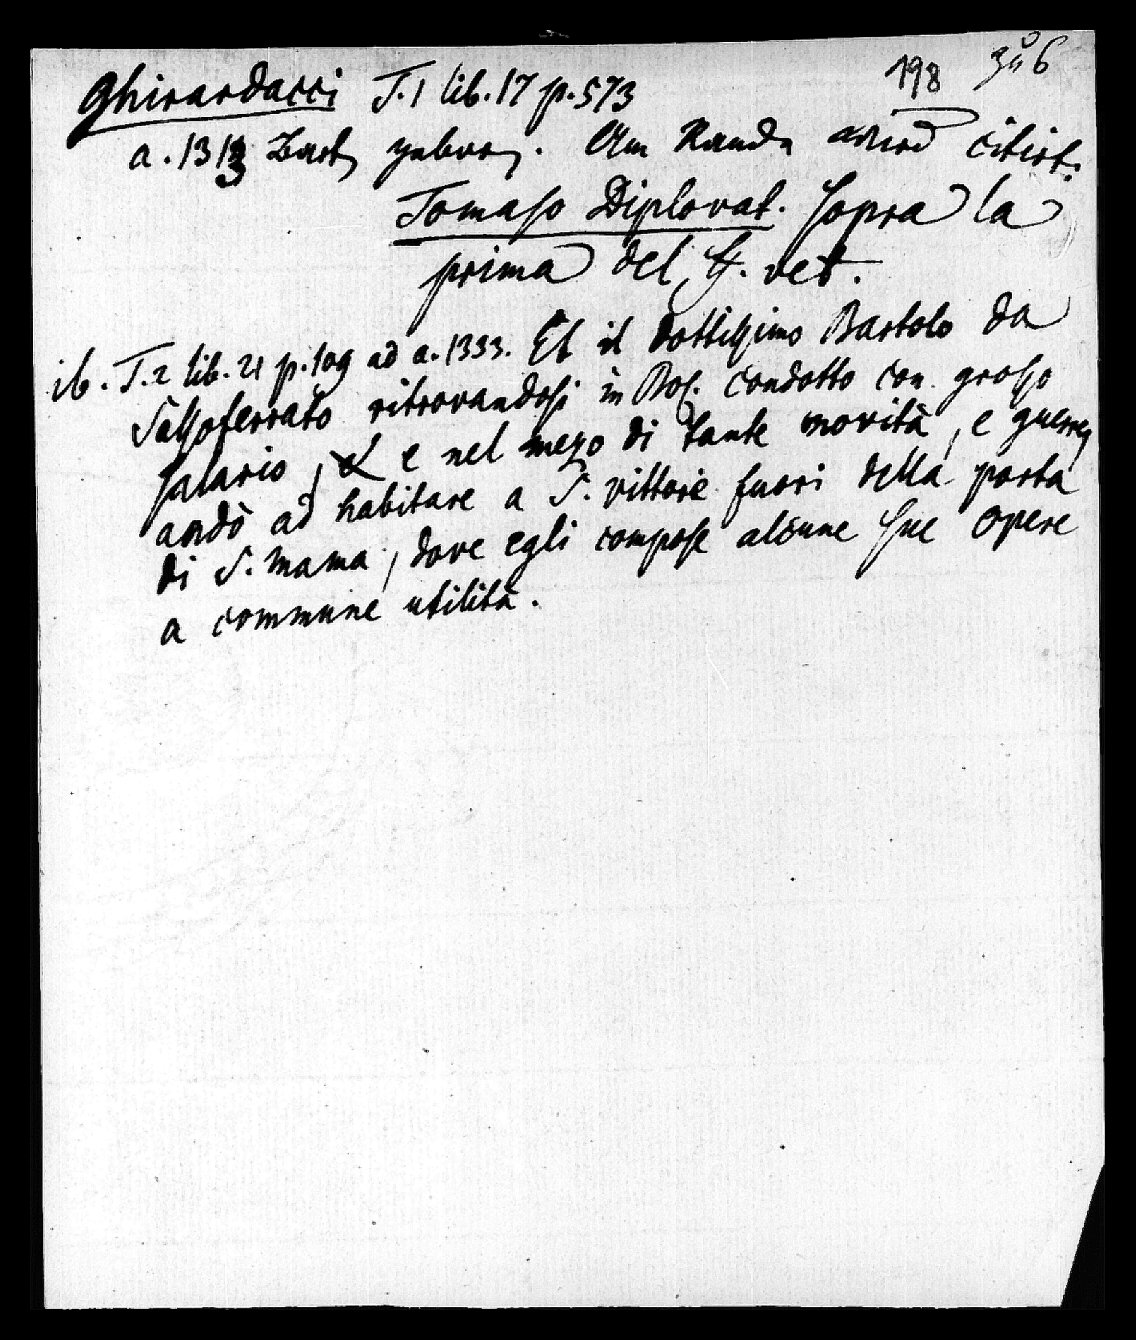 198 306
Ghirardacci T. 1 lib. 17 p. 573
a. 1313 Bart. geboren. Am Rande wird citirt.
Tomaso Diplovat. sopra la
prima del ff. vet.
ib. T. 2 lib. 21 p. 109 ad a. 1333. Et il dottissimo Bartolo da
Sassoferrato ritrovandosi in Bol. condotto con grosso
salario, e nel mezo di tante novità, e guerre,
andò ad habitare a S. vittore fuori della porta
di S. Mama, dove egli compose alcune sue opere
a commune utilità.